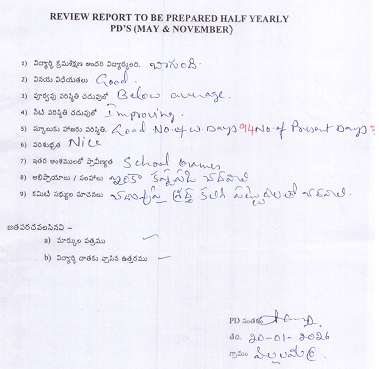 REVIEW REPORT TO BE PREPARED HALF YEARLY
PD'S (MAY & NOVEMBER)
1) విద్యార్థి క్రమశిక్షణ అందరి విద్యార్థులంది. బాగుంది.
2) వినయ విధేయతలు Good.
3) పూర్వపు పరిస్థితి చదువులో Below average.
4) నేటి పరిస్థితి చదువులో Improving.
5) స్కూలుకు హాజరు పరిస్థితి. Good No of w. Days 94 No of Present Days
6) పరిశుభ్రత Nice
7) ఇతర అంశములలో ప్రావీణ్యత School Games
8) అభిప్రాయాలు / సలహాలు ఇంకా కష్టపడి చదవాలి
9) కమిటీ సభ్యుల సూచనలు చదువుపై శ్రద్ధ కలిగి పట్టుదలతో చదవాలి.
జతపరచవలసినవి –
a) మార్కుల పత్రము
b) విద్యార్థి దాతకు వ్రాసిన ఉత్తరము
PD సంతకం
తేది. 20-01-2026
గ్రామం.